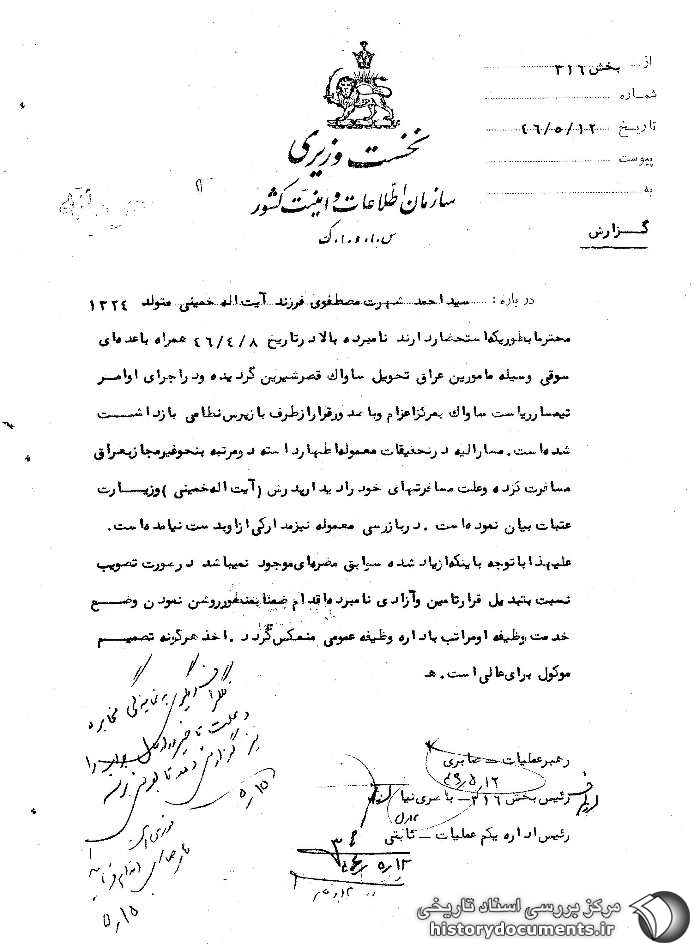 از بخش ۳۱۶
شماره
تاریخ ۴۶/۵/۱۲
پیوست
به
نخست وزیری
سازمان اطلاعات و امنیت کشور
س.ا.و.ا.ک
گزارش
درباره: سید احمد شهرت مصطفوی فرزند آیت اله خمینی متولد ۱۳۲۴
محترما بطوریکه استحضار دارند نامبرده بالا در تاریخ ۴۶/۴/۸ همراه با عده‌ای
سوقی وسیله مامورین عراق تحویل ساواک قصرشیرین گردیده و در اجرای اوامر
تیمسار ریاست ساواک بمرکز اعزام و با صدور قرار از طرف بازپرس نظامی بازداشت
شده است. مشارالیه در تحقیقات معموله اظهار داشته دو مرتبه بنحو غیر مجاز بعراق
مسافرت کرده و علت مسافرتهای خود را دیدار پدرش (آیت اله خمینی) و زیارت
عتبات بیان نموده است. در بازرسی معموله نیز مدارکی از او بدست نیامده است.
علیهذا با توجه باینکه از یاد شده سوابق مضره‌ای موجود نمیباشد در صورت تصویب
نسبت بتبدیل قرار تامین و آزادی نامبرده اقدام ضمنا بمنظور روشن نمودن وضع
خدمت وظیفه او مراتب باداره وظیفه عمومی منعکس گردد. اخذ هرگونه تصمیم
موکول برای عالی است. هـ
رهبر عملیات - صابری
۴۶/۵/۱۲
رئیس بخش ۳۱۶ - یاسری نیا
رئیس اداره یکم عملیات - ثابتی
۵/۱۲
۵/۱۵
۵/۱۵
مرکز بررسی اسناد تاریخی
historydocuments.ir